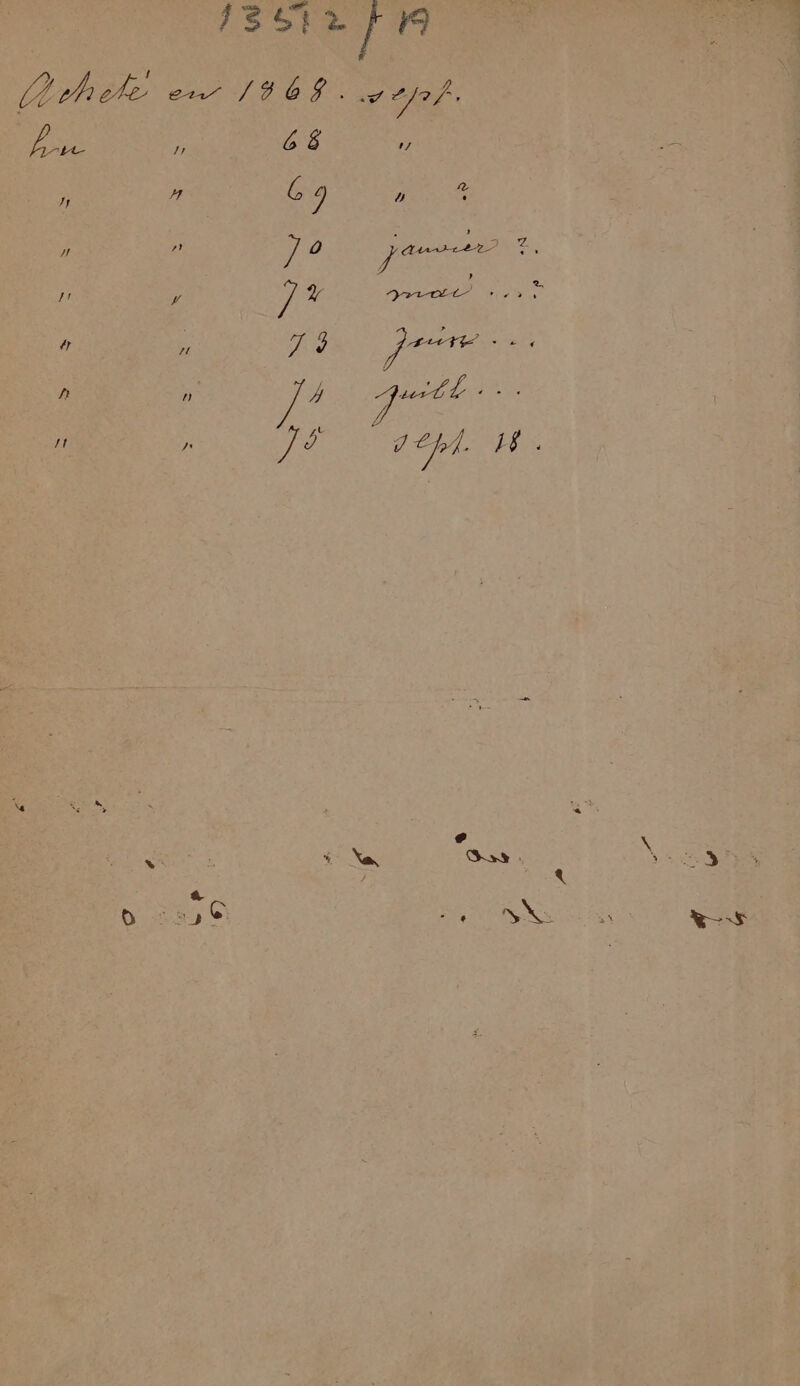 13512/19
Acheté en 1868. sept.
Lu " 68 "
" " 69 " ?
" " 70 janvier ?.
" " 72 mai ...?
" " 73 juin ...
" " 74 juill...
" " 75 sept. 18.